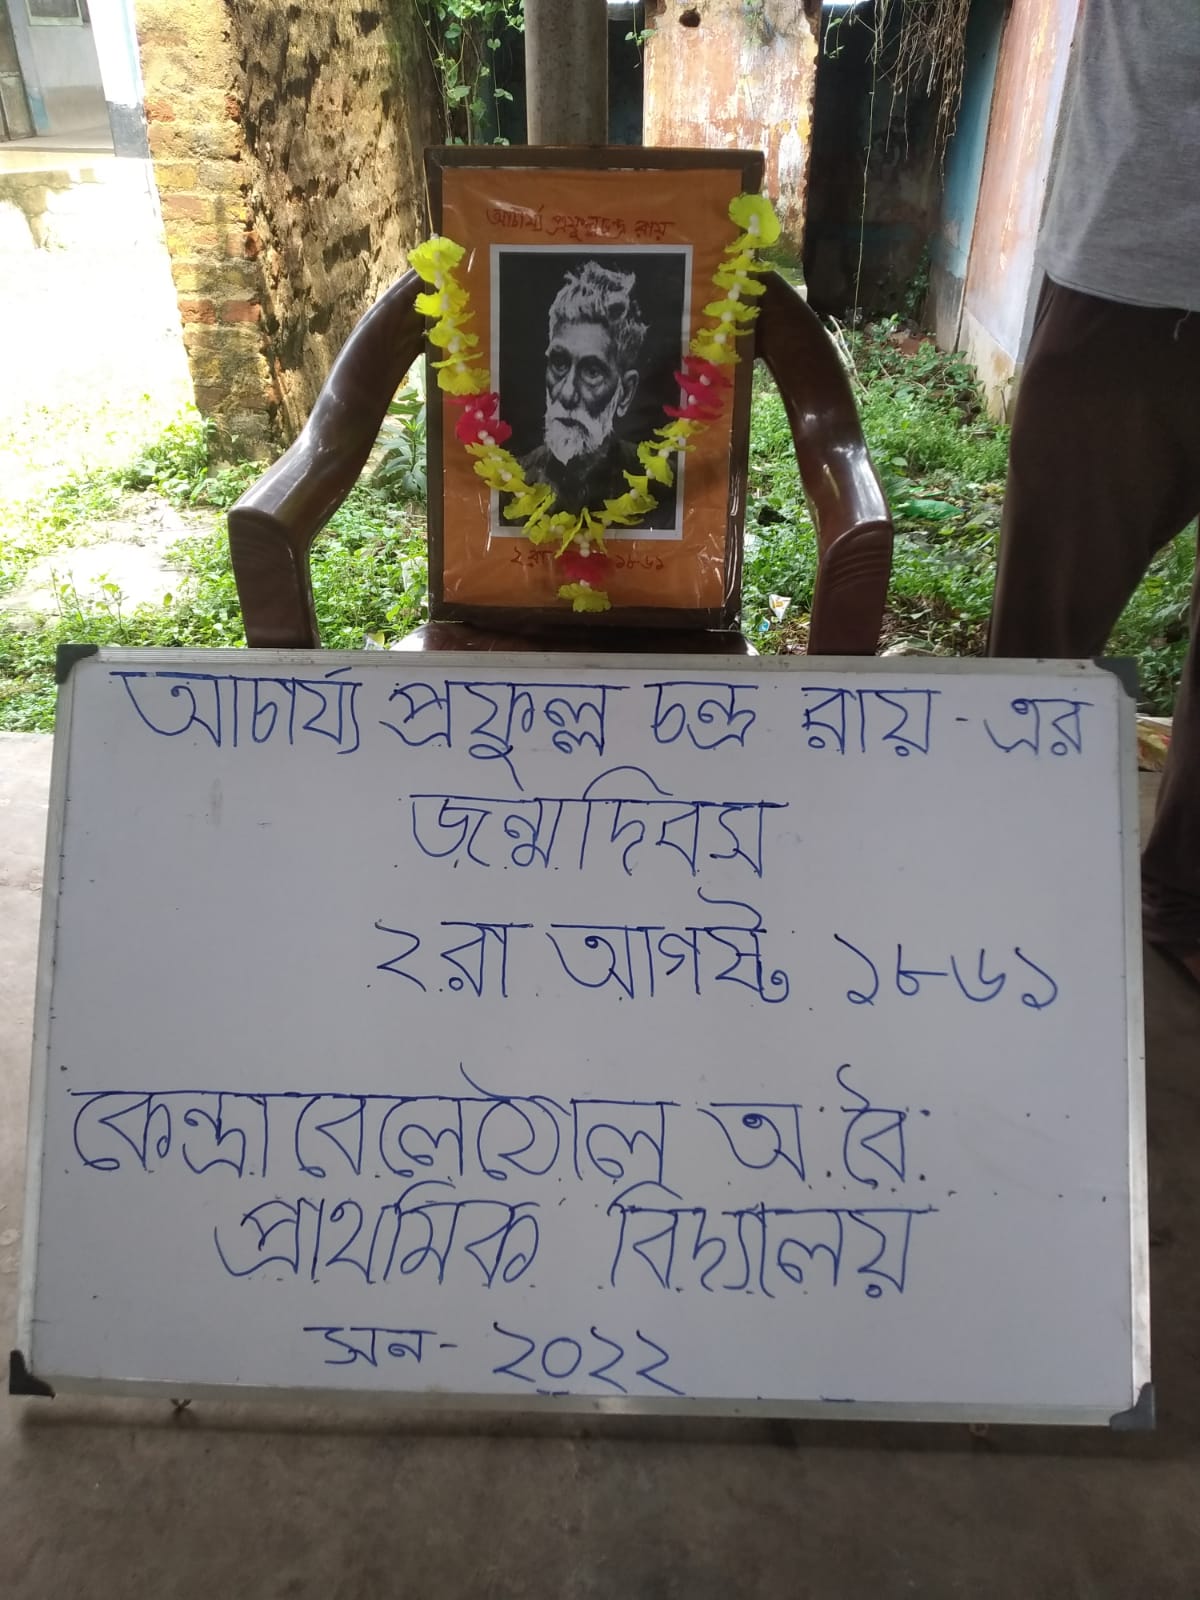 আচার্য্য প্রফুল্লচন্দ্র রায়
২রা ১৮৬১
আচার্য্য প্রফুল্ল চন্দ্র রায় - এর
জন্মদিবস
২রা আগস্ট ১৮৬১
কেন্দ্রাবেলেঠোল অ. বৈ.
প্রাথমিক বিদ্যালয়
সন - ২০২২